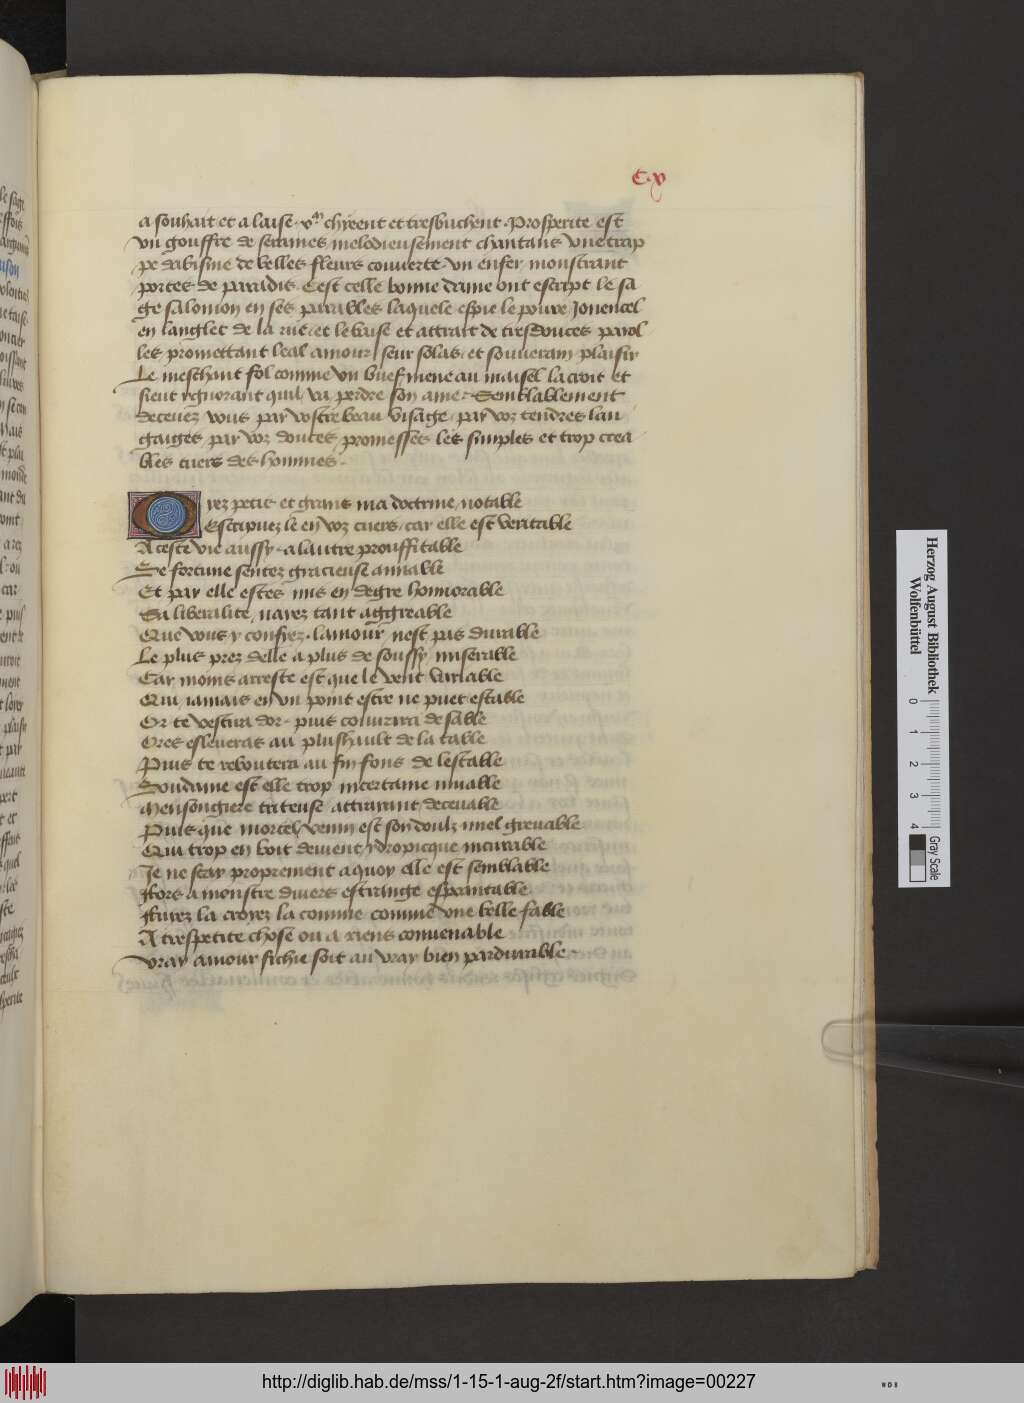 C.xv
a souhait et a laise. vm chyeent et tresbuchent. Prosperite est
vn gouffre de seraines melodieusement chantans vne trap
pe dabisme de belles fleurs couuerte. vn enfer monstrant
portes de paradis. Cest celle bonne dame ont escript le sa
ge salomon en ses paraboles laquele espie le poure Jouencel
en langlet de la rue. et le baise et attrait de tresdouces parol
les promettant leal amour seur solas. et souuerain plaisir
Le meschant fol comme vn buef mene au maisel la croit et
sieut ygnorant quil va perdre son ame. Semblablement
deceuez vous par vostre beau visage. par voz tendres lan
gaiges par voz douces promesses les simples et trop crea
bles cuers des hommes.
Oyez petis et grans ma doctrine notable
Escripuez le en voz cuers. car elle est veritable
A ceste vie aussy. a lautre prouffitable
Se fortune sentez gracieuse amiable
Et par elle estes mis en degre honnorable
Sa liberalite, nayez tant aggreable
Que vous y confiez. lamour nest pas durable
Le plus prez delle a plus de soussy miserable
Car moins arreste est que le vent variable
Qui iamais en vn point estre ne puet estable
Or te vestira dor. puis couurira de sable
Ores esleueras au plushault de la table
Puis te reboutera au fin fons de lestable
Soudaine est elle trop incertaine muable
Mensongiere triteuse attrayant deceuable
Puisque mortel venin est son doulz miel greuable
Qui trop en boit deuient ydropicque incurable
Je ne scay proprement a quoy elle est semblable
Fors a monstre diuers estrange espauntable
Fuyez la croyez la comme comme vne belle fable
A trespetite chose ou a riens conuenable
Vray amour fichie soit au vray bien pardurable
Herzog August Bibliothek
Wolfenbüttel
0 1 2 3 4
Gray Scale
http://diglib.hab.de/mss/1-15-1-aug-2f/start.htm?image=00227
WDB